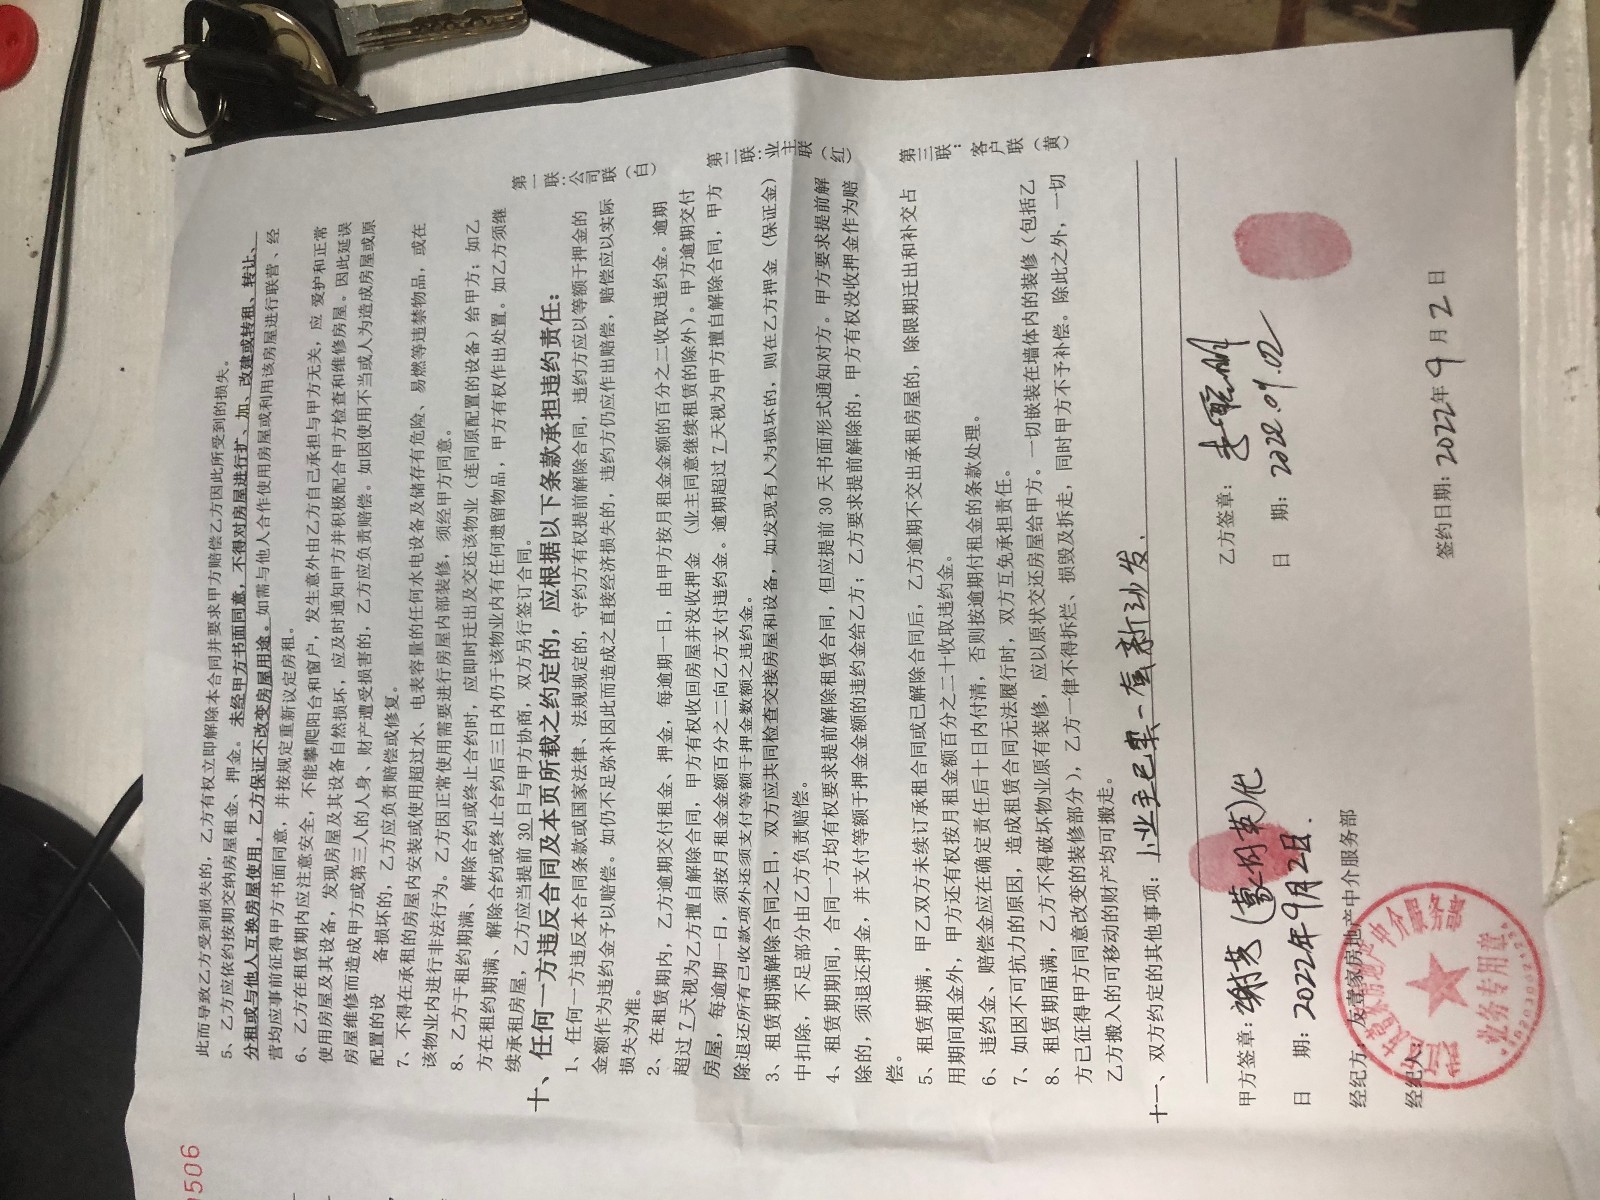 此而导致乙方受到损失的，乙方有权立即解除本合同并要求甲方赔偿乙方因此所受到的损失。
5、乙方应依约按期交纳房屋租金、押金。未经甲方书面同意，不得对房屋进行扩、加、改建或转租、转让、
分租或与他人互换房屋使用，乙方保证不改变房屋用途。如需与他人合作使用房屋或利用该房屋进行联营、经
营均应事前征得甲方书面同意，并按规定重新议定房租。
6、乙方在租赁期内应注意安全，不能攀爬阳台和窗户，发生意外由乙方自己承担与甲方无关，应 爱护和正常
使用房屋及其设备，发现房屋及其设备自然损坏，应及时通知甲方并积极配合甲方检查和维修房屋。因此延误
房屋维修而造成甲方或第三人的人身、财产遭受损害的，乙方应负责赔偿。如因使用不当或人为造成房屋或原
配置的设 备损坏的，乙方应负责赔偿或修复。
7、不得在承租的房屋内安装或使用超过水、电表容量的任何水电设备及储存有危险、易燃等违禁物品，或在
该物业内进行非法行为。乙方因正常使用需要进行房屋内部装修，须经甲方同意。
8、乙方于租约期满、解除合约或终止合约时，应即时迁出及交还该物业（连同原配置的设备）给甲方；如乙
方在租约期满、解除合约或终止合约后三日内仍于该物业内有任何遗留物品，甲方有权作出处置。如乙方须继
续承租房屋，乙方应当提前 30 日与甲方协商，双方另行签订合同。
十、任何一方违反合同及本页所载之约定的，应根据以下条款承担违约责任：
1、任何一方违反本合同条款或国家法律、法规规定的，守约方有权提前解除合同，违约方应以等额于押金的
金额作为违约金予以赔偿。如仍不足弥补因此而造成之直接经济损失的，违约方仍应作出赔偿，赔偿应以实际
损失为准。
2、在租赁期内，乙方逾期交付租金、押金，每逾期一日，由甲方按月租金金额的百分之二收取违约金。逾期
超过 7 天视为乙方擅自解除合同，甲方有权收回房屋并没收押金（业主同意继续租赁的除外）。甲方逾期交付
房屋，每逾期一日，须按月租金金额百分之二向乙方支付违约金。逾期超过 7 天视为甲方擅自解除合同，甲方
除退还所有已收款项外还须支付等额于押金数额之违约金。
3、租赁期满解除合同之日，双方应共同检查交接房屋和设备，如发现有人为损坏的，则在乙方押金（保证金）
中扣除，不足部分由乙方负责赔偿。
4、租赁期期间，合同一方均有权要求提前解除租赁合同，但应提前 30 天书面形式通知对方。甲方要求提前解
除的，须退还押金，并支付等额于押金金额的违约金给乙方；乙方要求提前解除的，甲方有权没收押金作为赔
偿。
5、租赁期满，甲乙双方未续订承租合同或已解除合同后，乙方逾期不交出承租房屋的，除限期迁出和补交占
用期间租金外，甲方还有权按月租金额百分之二十收取违约金。
6、违约金、赔偿金应在确定责任后十日内付清，否则按逾期付租金的条款处理。
7、如因不可抗力的原因，造成租赁合同无法履行时，双方互免承担责任。
8、租赁届期满，乙方不得破坏物业原有装修，应以原状交还房屋给甲方。一切嵌装在墙体内的装修（包括乙
方已征得甲方同意改变的装修部分），乙方一律不得拆烂、损毁及拆走，同时甲方不予补偿。除此之外，一切
乙方搬入的可移动的财产均可搬走。
十一、双方约定的其他事项：1、业主已买一套新沙发.
甲方签章：
乙方签章：
日 期：2022年9月2日.
日 期：2022.09.02
经纪方：友壹家房地产中介服务部
经纪人：
签约日期：2022年9月2日
第一联：公司联（白）
第二联：业主联（红）
第三联：客户联（黄）
业务专用章
506